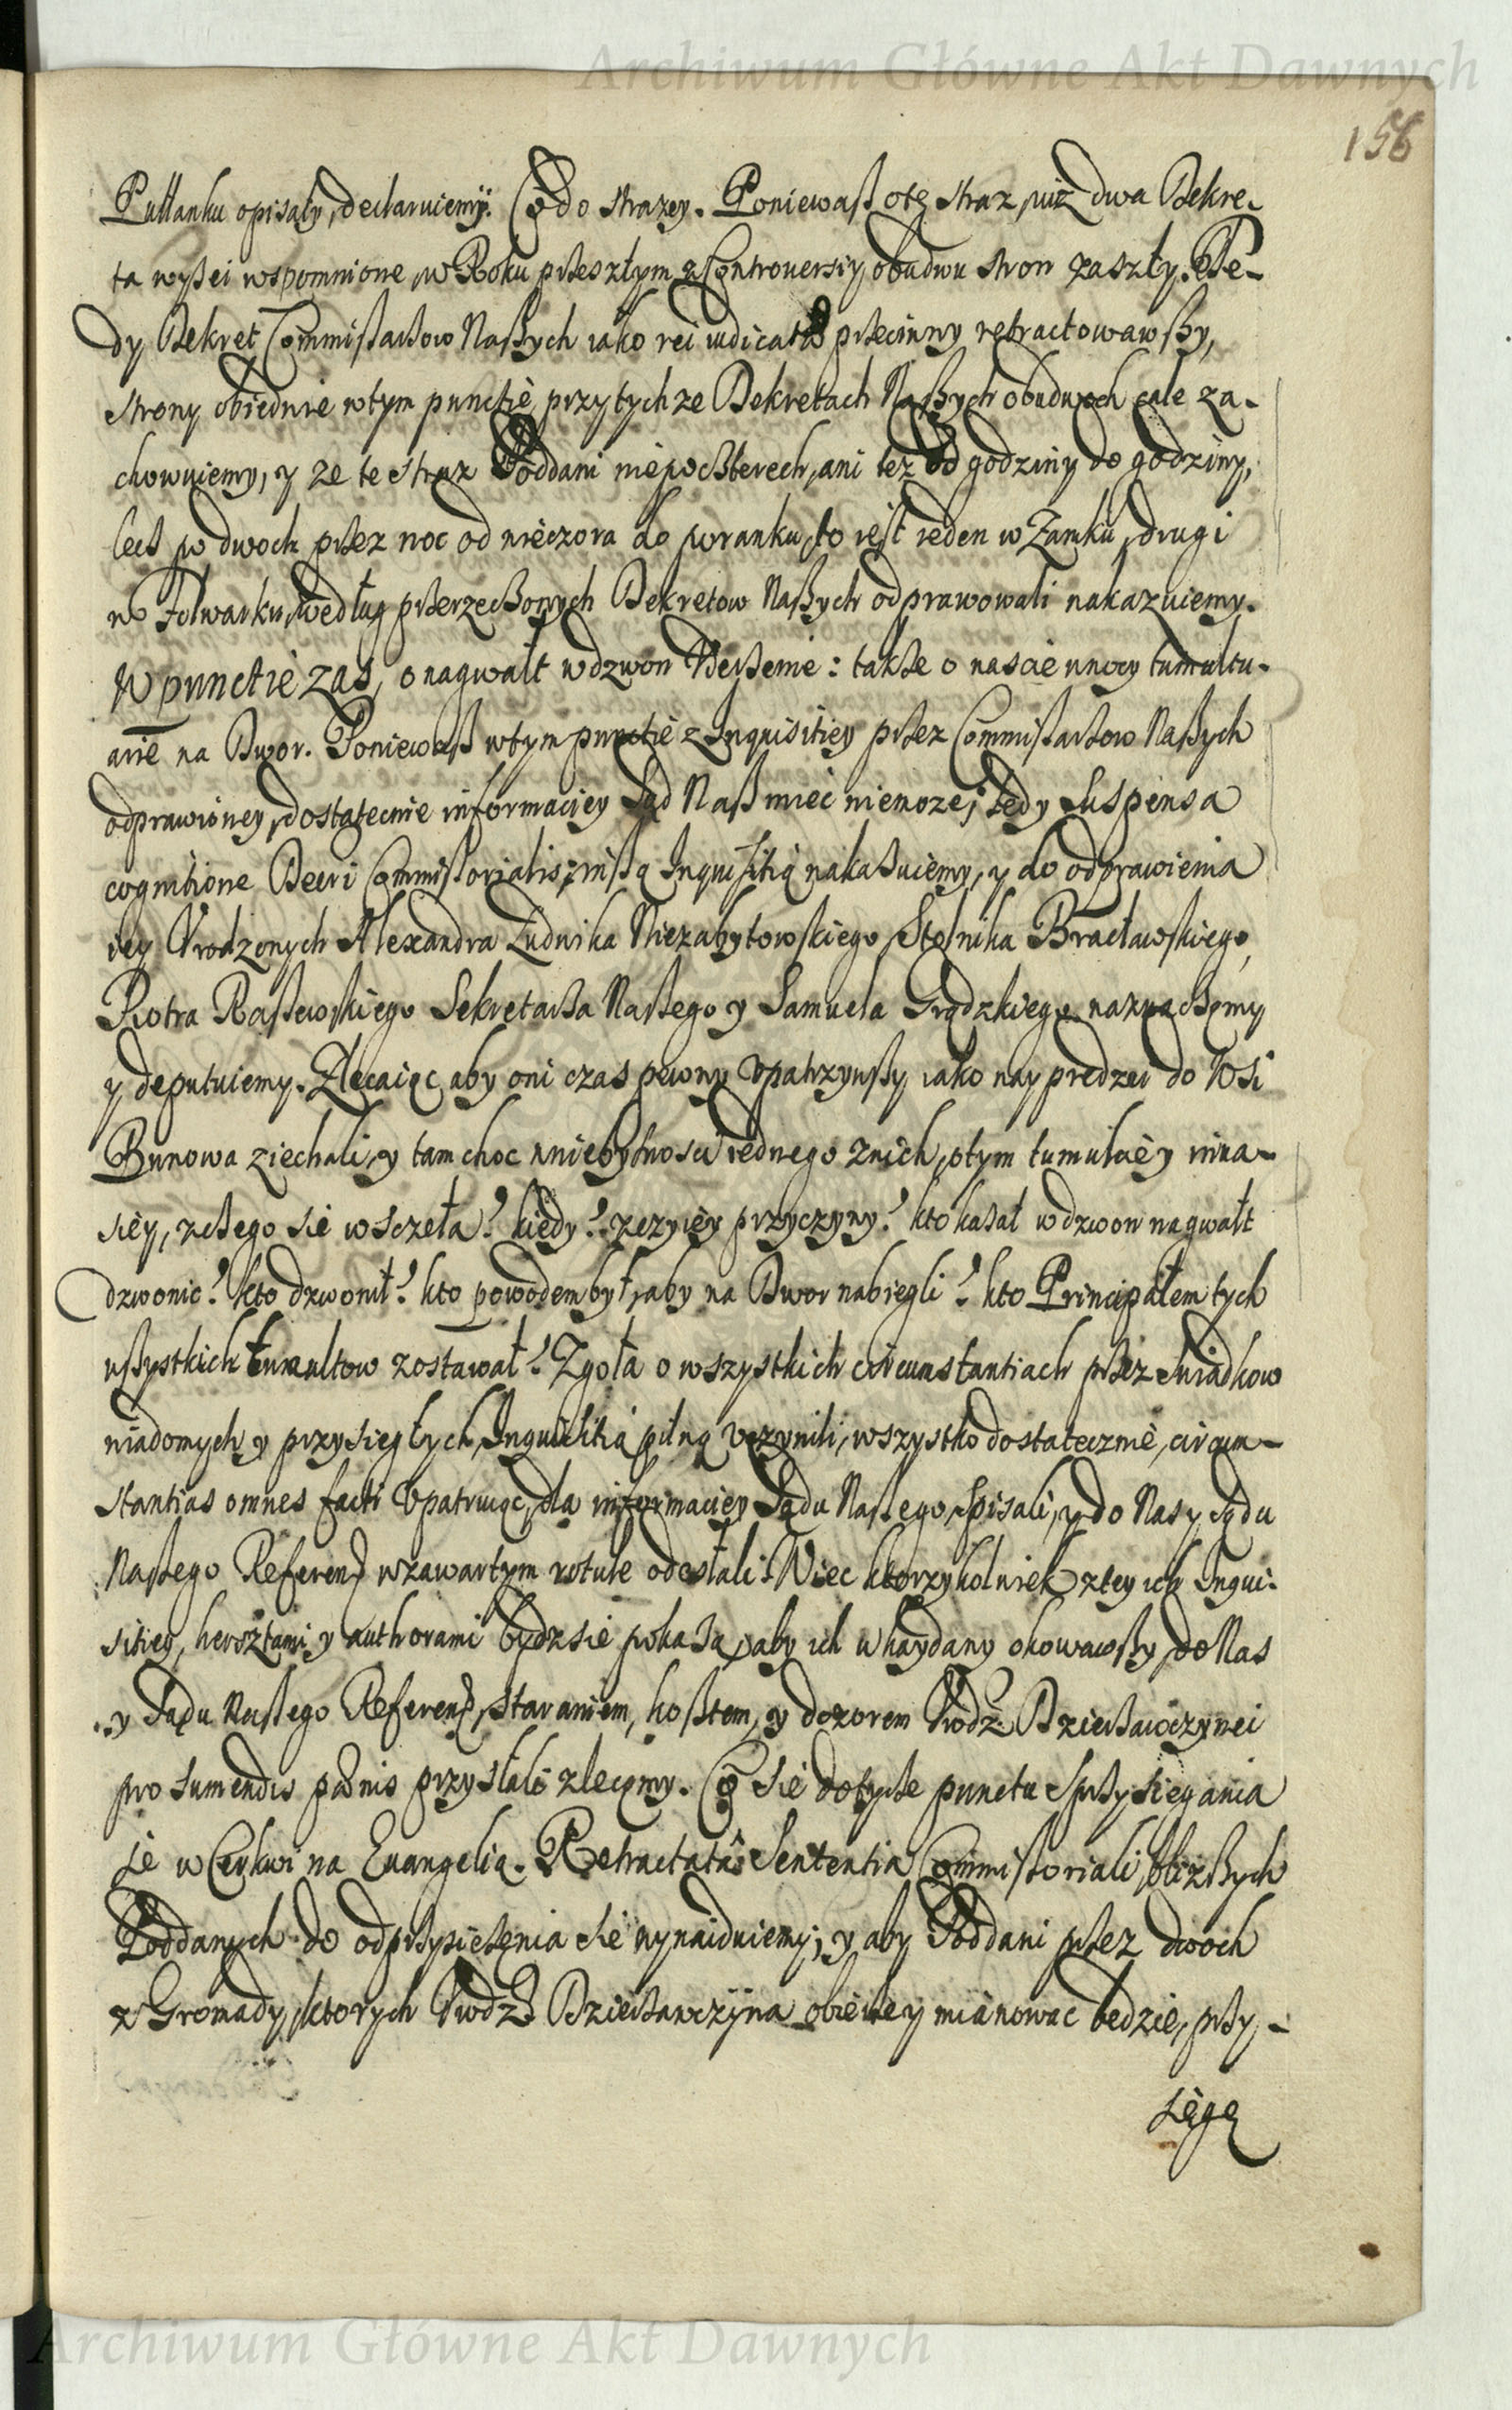 Archiwum Główne Akt Dawnych
156
Pułłanku opisały, declaruiemy. Co do strazey. Poniewasz otę straz, iuż dwa Dekre-
ta wyszei wspomnione, w Roku przeszłym z Controuersiy obudwu stron zaszły. Te-
dy Dekret Commissarzow Naszych iako rei iudicatæ przeciwny retractowawszy,
strony obiedwie wtym punctie przy tychze Dekretach Naszych obudwoch cale za-
chowuiemy, y ze te straz Poddani niepoczterech, ani też od godziny do godziny,
lecz po dwoch przez noc od wieczora do poranku, to iest ieden w Zamku, drugi
w Folwarku, według przerzeczonych Dekretow Naszych odprawowali nakazuiemy.
W punctie zas, o nagwałt wdzwon Vderzenie: takze o nascie wnocy tumultu-
arie na Dwor. Poniewasz wtym punctie z Inquisitiey przez Commissarzow Naszych
odprawioney, dostatecznie informaciey Sąd Nasz miec niemoze; tedy Suspensa
cognitione Decreti Commissorialis, inszą Inquisitią nakazuiemy, y do odprawienia
iey Vrodzonych Alexandra Ludwika Niezabytowskiego Stolnika Bracławskiego,
Piotra Raszewskiego Sekretarza Naszego y Samuela Grądzkiego naznaczamy
y deputuiemy. Zlecaiąc aby oni czas pewny Vpatrzywszy iako nayprędzei do Wsi
Bunowa ziechali, y tam choc wniebytnosci iednego znich, o tym tumulcie y inua-
siey, zczego sie wsczeła? kiedy? zczyiey przyczyny? kto kazał wdzwon nagwałt
dzwonic? kto dzwonił? kto powodem był, aby na Dwor nabiegli? kto Principałem tych
wszystkich tumultow zostawał? Zgoła o wszystkich circumstantiach przez swiadkow
wiadomych y przysięgłych, Inquisitią pilną Vczynili, wszystko dostatecznie, circum-
stantias omnes facti Vpatruiąc, dla informaciey Sądu Naszego, spisali, y do Nas y Sądu
Naszego Referend wzawartym rotule odesłali. Wiec ktorzykolwiek ztey ich Inqui-
sitiey, hersztami y authorami bydz sie pokażą, aby ich w kaydany okowawszy, do Nas
y Sądu Naszego Referend, staraniem, kosztem, y dozorem Vrodz. Dzierzawczynei
pro sumendis pœnis przysłali zlecamy. Co sie dotycze punctu sprzysiegania
sie w Cerkwi na Euangelią. Retractatâ Sententia Commissoriali, bliższych
Poddanych do odprzysiezenia sie wynaiduiemy; y aby Poddani przez dwoch
z Gromady, ktorych Vrodz Dzierzawczyna obierzey mianowac bedzie, przy-
sięgę
Archiwum Główne Akt Dawnych